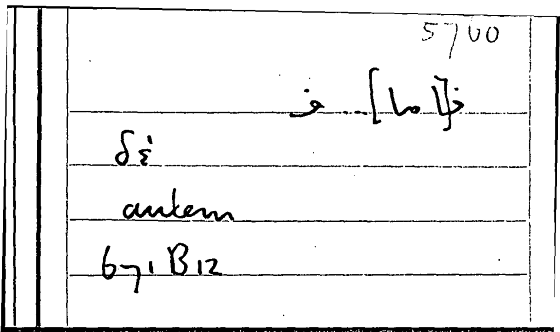 5700
ف[اما] ... ف
δέ
autem
671 B12